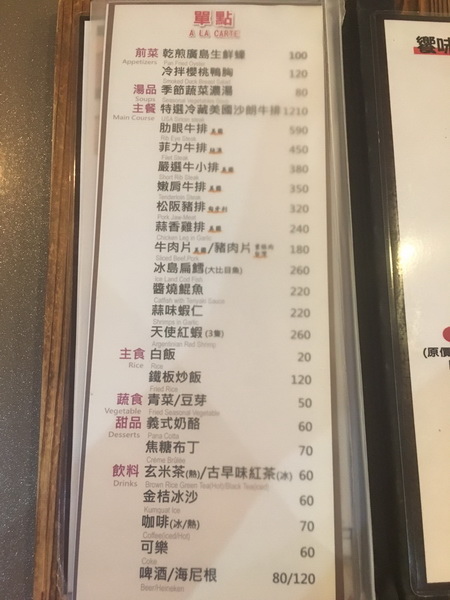 單點
A LA CARTE
前菜 乾煎廣島生鮮蠔 100
Appetizers Pan Fried Oyster
冷拌櫻桃鴨胸 120
Smoked Duck Breast Salad
湯品 季節蔬菜濃湯 80
Soups Seasonal Vegetable Soup
主餐 特選冷藏美國沙朗牛排 1210
Main Course USA Sirloin steak
肋眼牛排 美國 590
Rib Eye Steak
菲力牛排 450
Filet Steak
嚴選牛小排 美國 380
Short Rib Steak
嫩肩牛排 美國 350
Tenderloin Steak
松阪豬排 320
Pork Jowl Meat
蒜香雞排 美國 240
Chicken Leg in Garlic
牛肉片 美國/豬肉片 180
Sliced Beef/Pork
冰島扁鱈(大比目魚) 260
Ice Land Cod Fish
醬燒鯤魚 220
Catfish with Teriyaki Sauce
蒜味蝦仁 220
Shrimps in Garlic
天使紅蝦 (3隻) 260
Argentinian Red Shrimp
主食 白飯 20
Rice Rice
鐵板炒飯 120
Fried Rice
蔬食 青菜/豆芽 50
Vegetable Fried Seasonal Vegetable
甜品 義式奶酪 60
Desserts Pana Cotta
焦糖布丁 70
Crème Brûlée
飲料 玄米茶(熱)/古早味紅茶(冰) 60
Drinks Brown Rice Green Tea(Hot)/Black Tea(Iced)
金桔冰沙 60
Kumquat Ice
咖啡(冰/熱) 70
Coffee(Iced/Hot)
可樂 60
Coke
啤酒/海尼根 80/120
Beer/Heineken
饗味
(原價